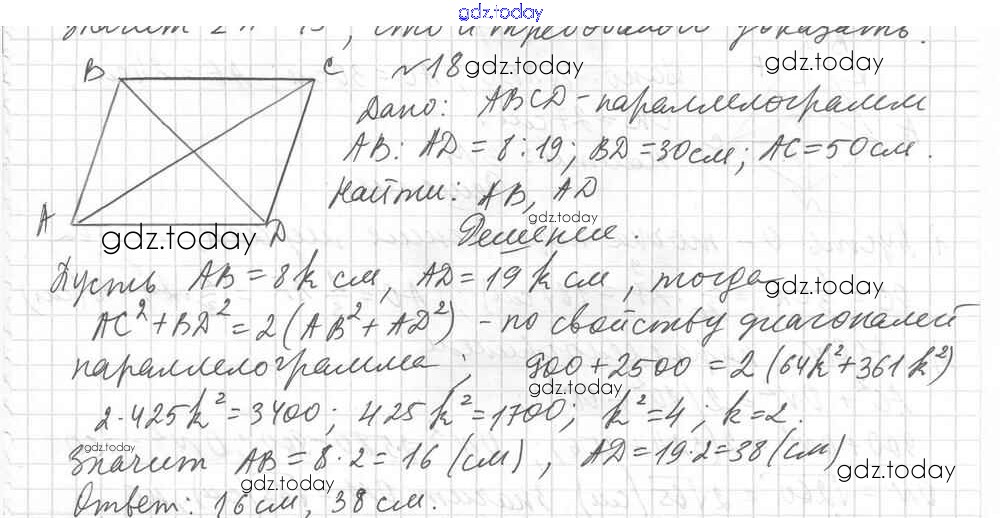 gdz.today
значит 2n = 15, что и требовалось доказать.
B C №18 gdz.today gdz.today
Дано: ABCD - параллелограмм
AB : AD = 8 : 19; BD = 30см; AC = 50см.
Найти: AB, AD
A D gdz.today gdz.today
Решение.
Пусть AB = 8k см, AD = 19k см, тогда gdz.today
AC² + BD² = 2(AB² + AD²) - по свойству диагоналей
параллелограмма; 900 + 2500 = 2(64k² + 361k²)
gdz.today
2·425k² = 3400; 425k² = 1700; k² = 4; k = 2.
gdz.today
Значит AB = 8·2 = 16 (см), AD = 19·2 = 38 (см)
gdz.today gdz.today gdz.today
Ответ: 16см, 38см.